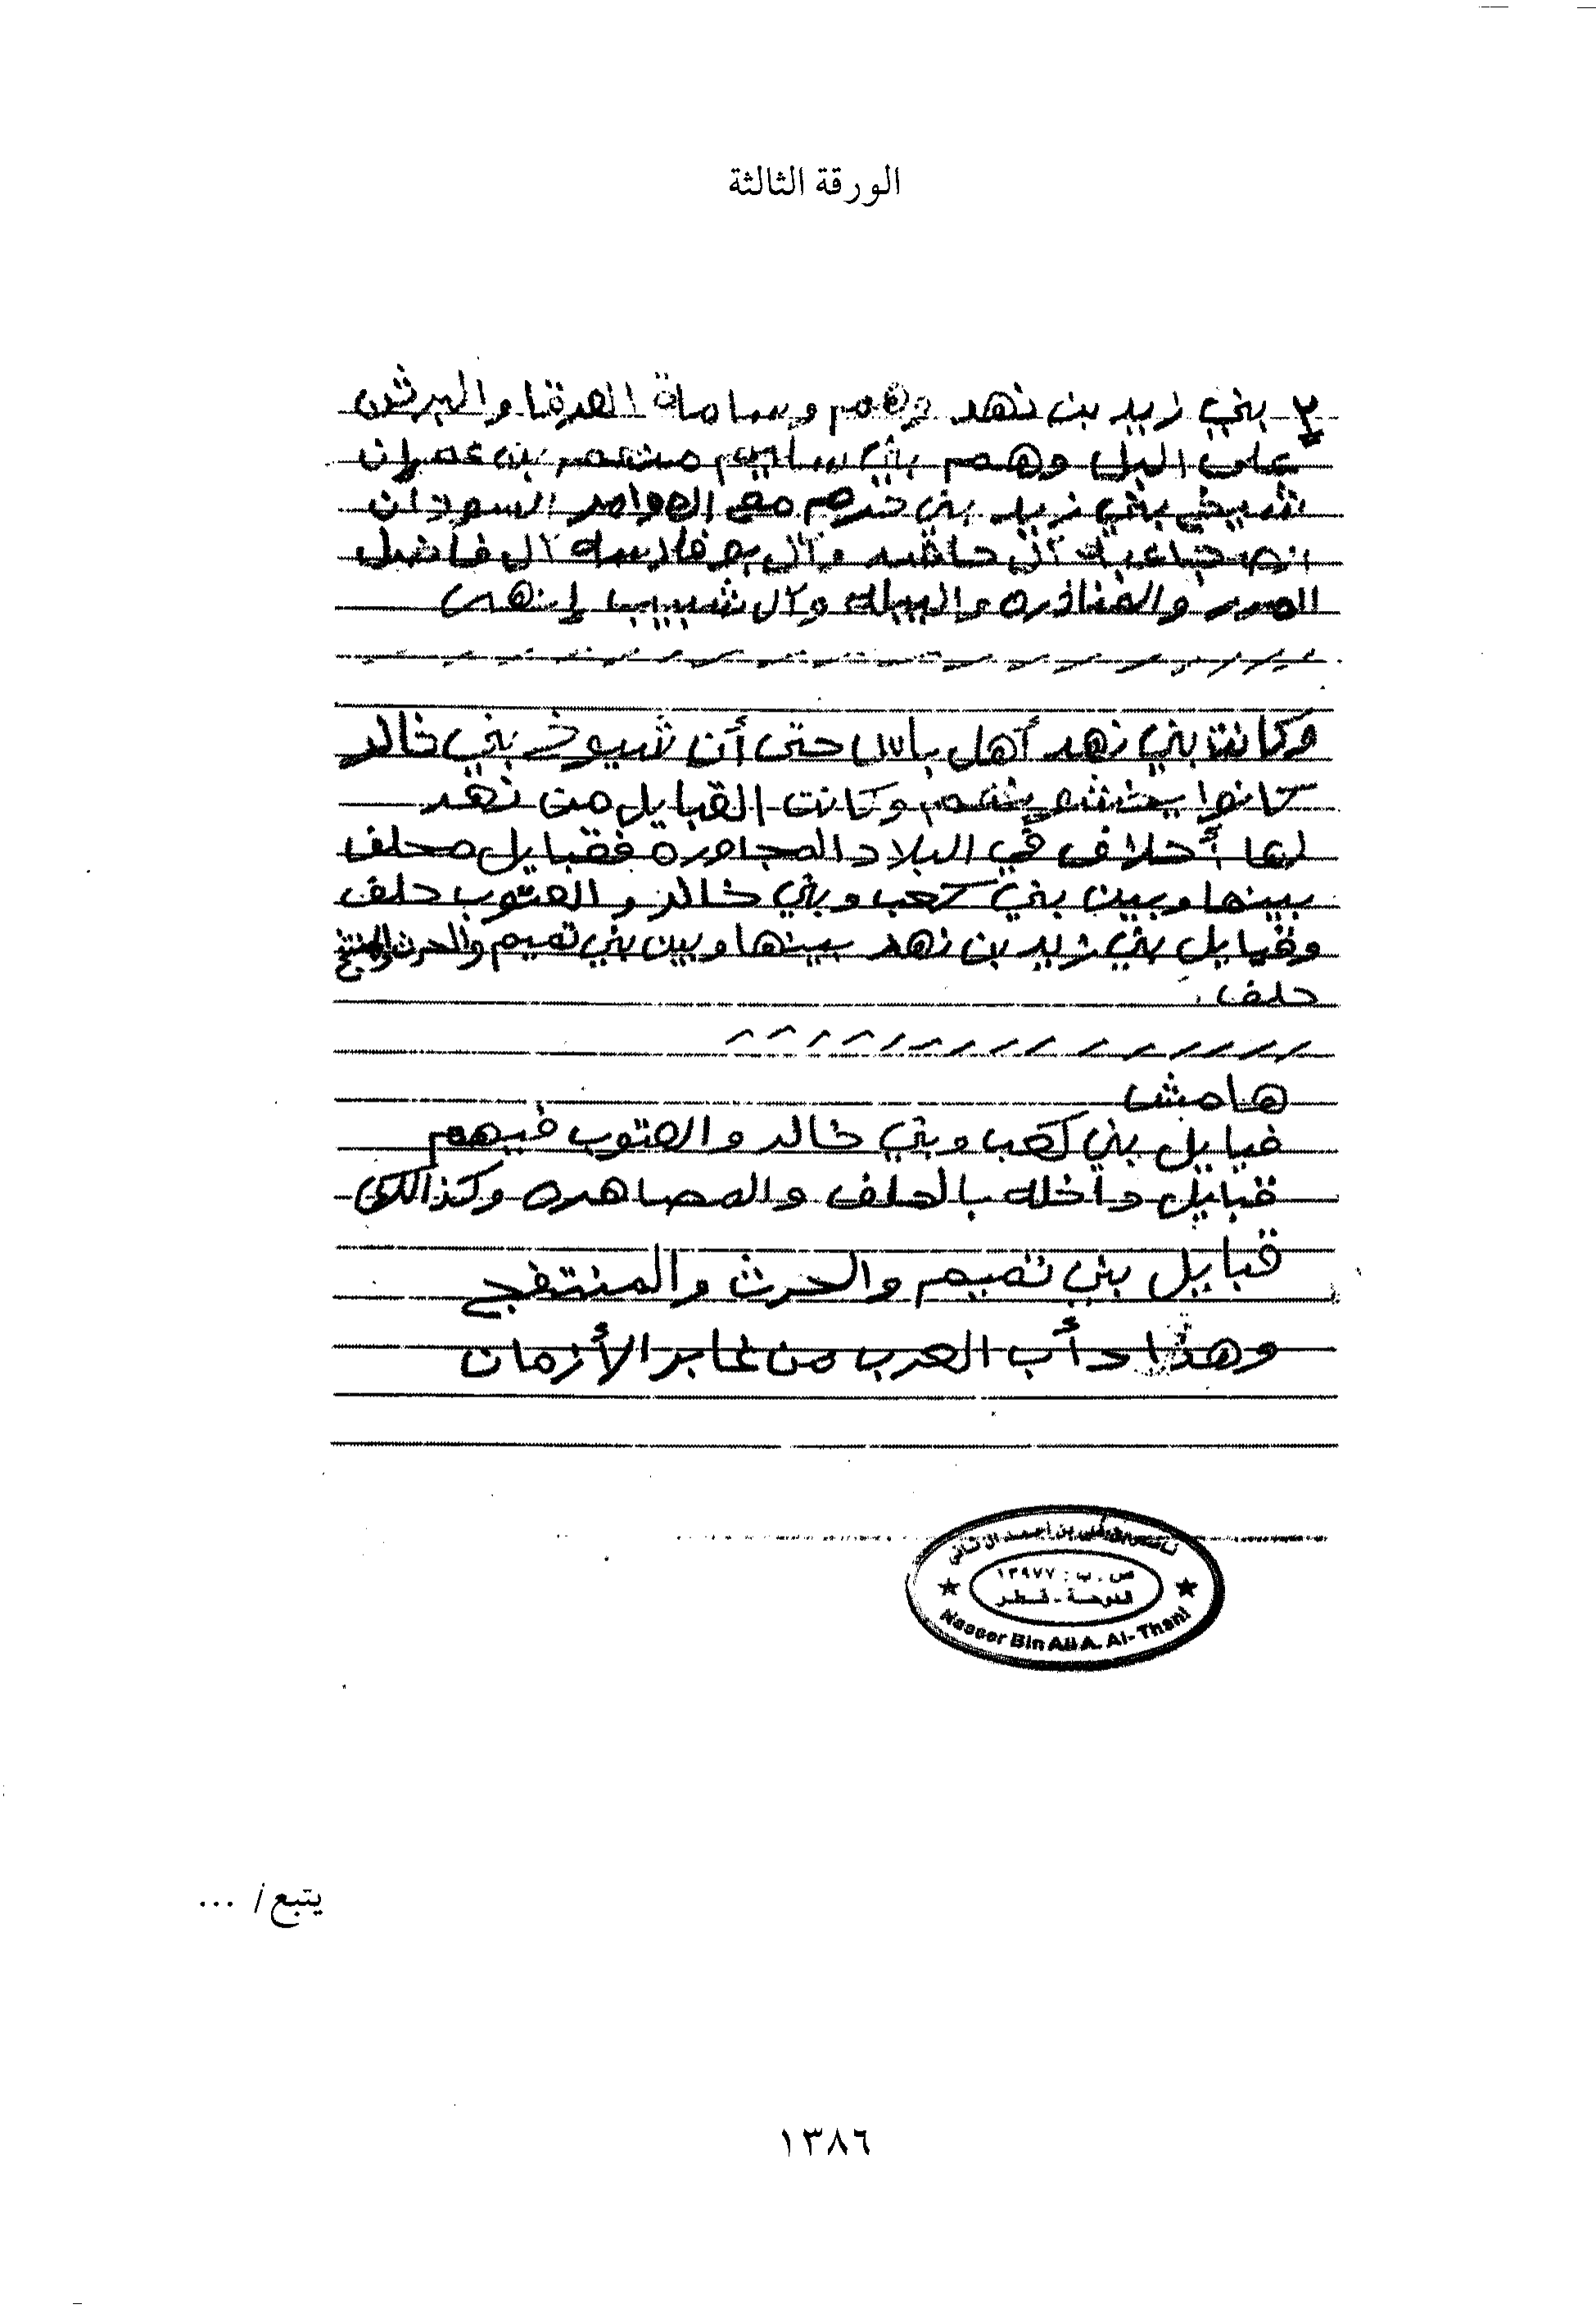 الورقة الثالثة
٢ بني زيد بن نهد وهم وسامة العرقا والبرثن
على البل وهم بني سليم منهم بن عمران
شيخ بني زيد بني خدم مع العوامر السودان
آل فاضل
والخناذره والبيله وآل شبيب إنتهى
وكانت بني نهد أهل باس حتى أن شيوخ بني خالد
كانوا يخشونهم وكانت القبايل من نهد
لها أحلاف في البلاد المجاوره فقبايل محلف
بينها وبين بني كعب وبني خالد والعتوب حلف
وقبايل بني زيد بن نهد بينها وبين بني تميم والحرث والمنتفج
حلف.
هامش
قبايل بني كعب وبني خالد والعتوب فيهم
قبايل داخله بالحلف والمصاهره وكذالك
قبايل بني تميم والحرث والمنتفج
وهذا دأب العرب من غابر الأزمان
ناصر بن علي بن أحمد آل ثاني
ص.ب: ١٣٩٧٧
الدوحة - قطر
Nasser Bin Ali A. Al-Thani
يتبع / ...
١٣٨٦